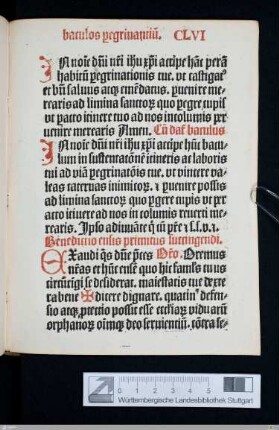 baculos ꝑegrinantiũ. CLVI
IN noīe dñi nr̃i ihu xp̃i accipe hãc perã
habitũ ꝑegrinationis tue. vt castigatꝰ
et bñ saluus atqꝫ emẽdatus. ꝑuenire me-
rearis ad limina sanctoꝝ quo ꝑegre cupis
vt ꝑacto itinere tuo ad nos incolumis pre
uenire merearis Amen. Cũ dat̃ baculus
IN noīe dñi nr̃i ihu xp̃i accipe hũc bacu
lum in sustentatōnẽ itineris ac laboris
tui ad viã ꝑegrinatōis tue. vt vincere va-
leas cateruas inimicoꝝ. ⁊ ꝑuenire possis
ad limina sanctoꝝ quo ꝑgere cupis vt ꝑe
acto itinere ad nos in columis reuerti me
rearis. Ipso adiuuãte
Benedictio ensis primitus succingendi.
EXaudi q̃s dñe p̃ces Oro. Oremus
nr̃as et hũc ensẽ quo hic famlꝰs tuus
circũcigi se desiderat. maiestatis tue dexte
ra bene ✠ dicere dignare. quatinꝰ defen-
sio atqꝫ ꝓtectio possit esse ecclīaꝝ viduarũ
orphanoꝝ oīmqꝫ deo seruientiũ. cõtra se-
Württembergische Landesbibliothek Stuttgart